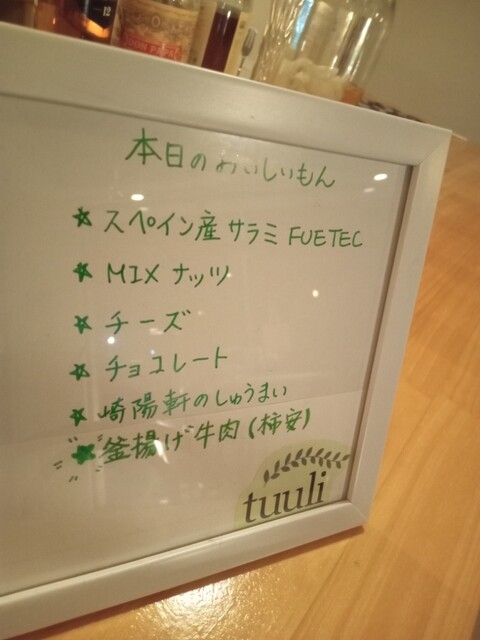 本日のおいしいもん
★ スペイン産サラミ FUETEC
★ MIX ナッツ
★ チーズ
★ チョコレート
★ 崎陽軒のしゅうまい
★ 釜揚げ牛肉(柿安)
tuuli